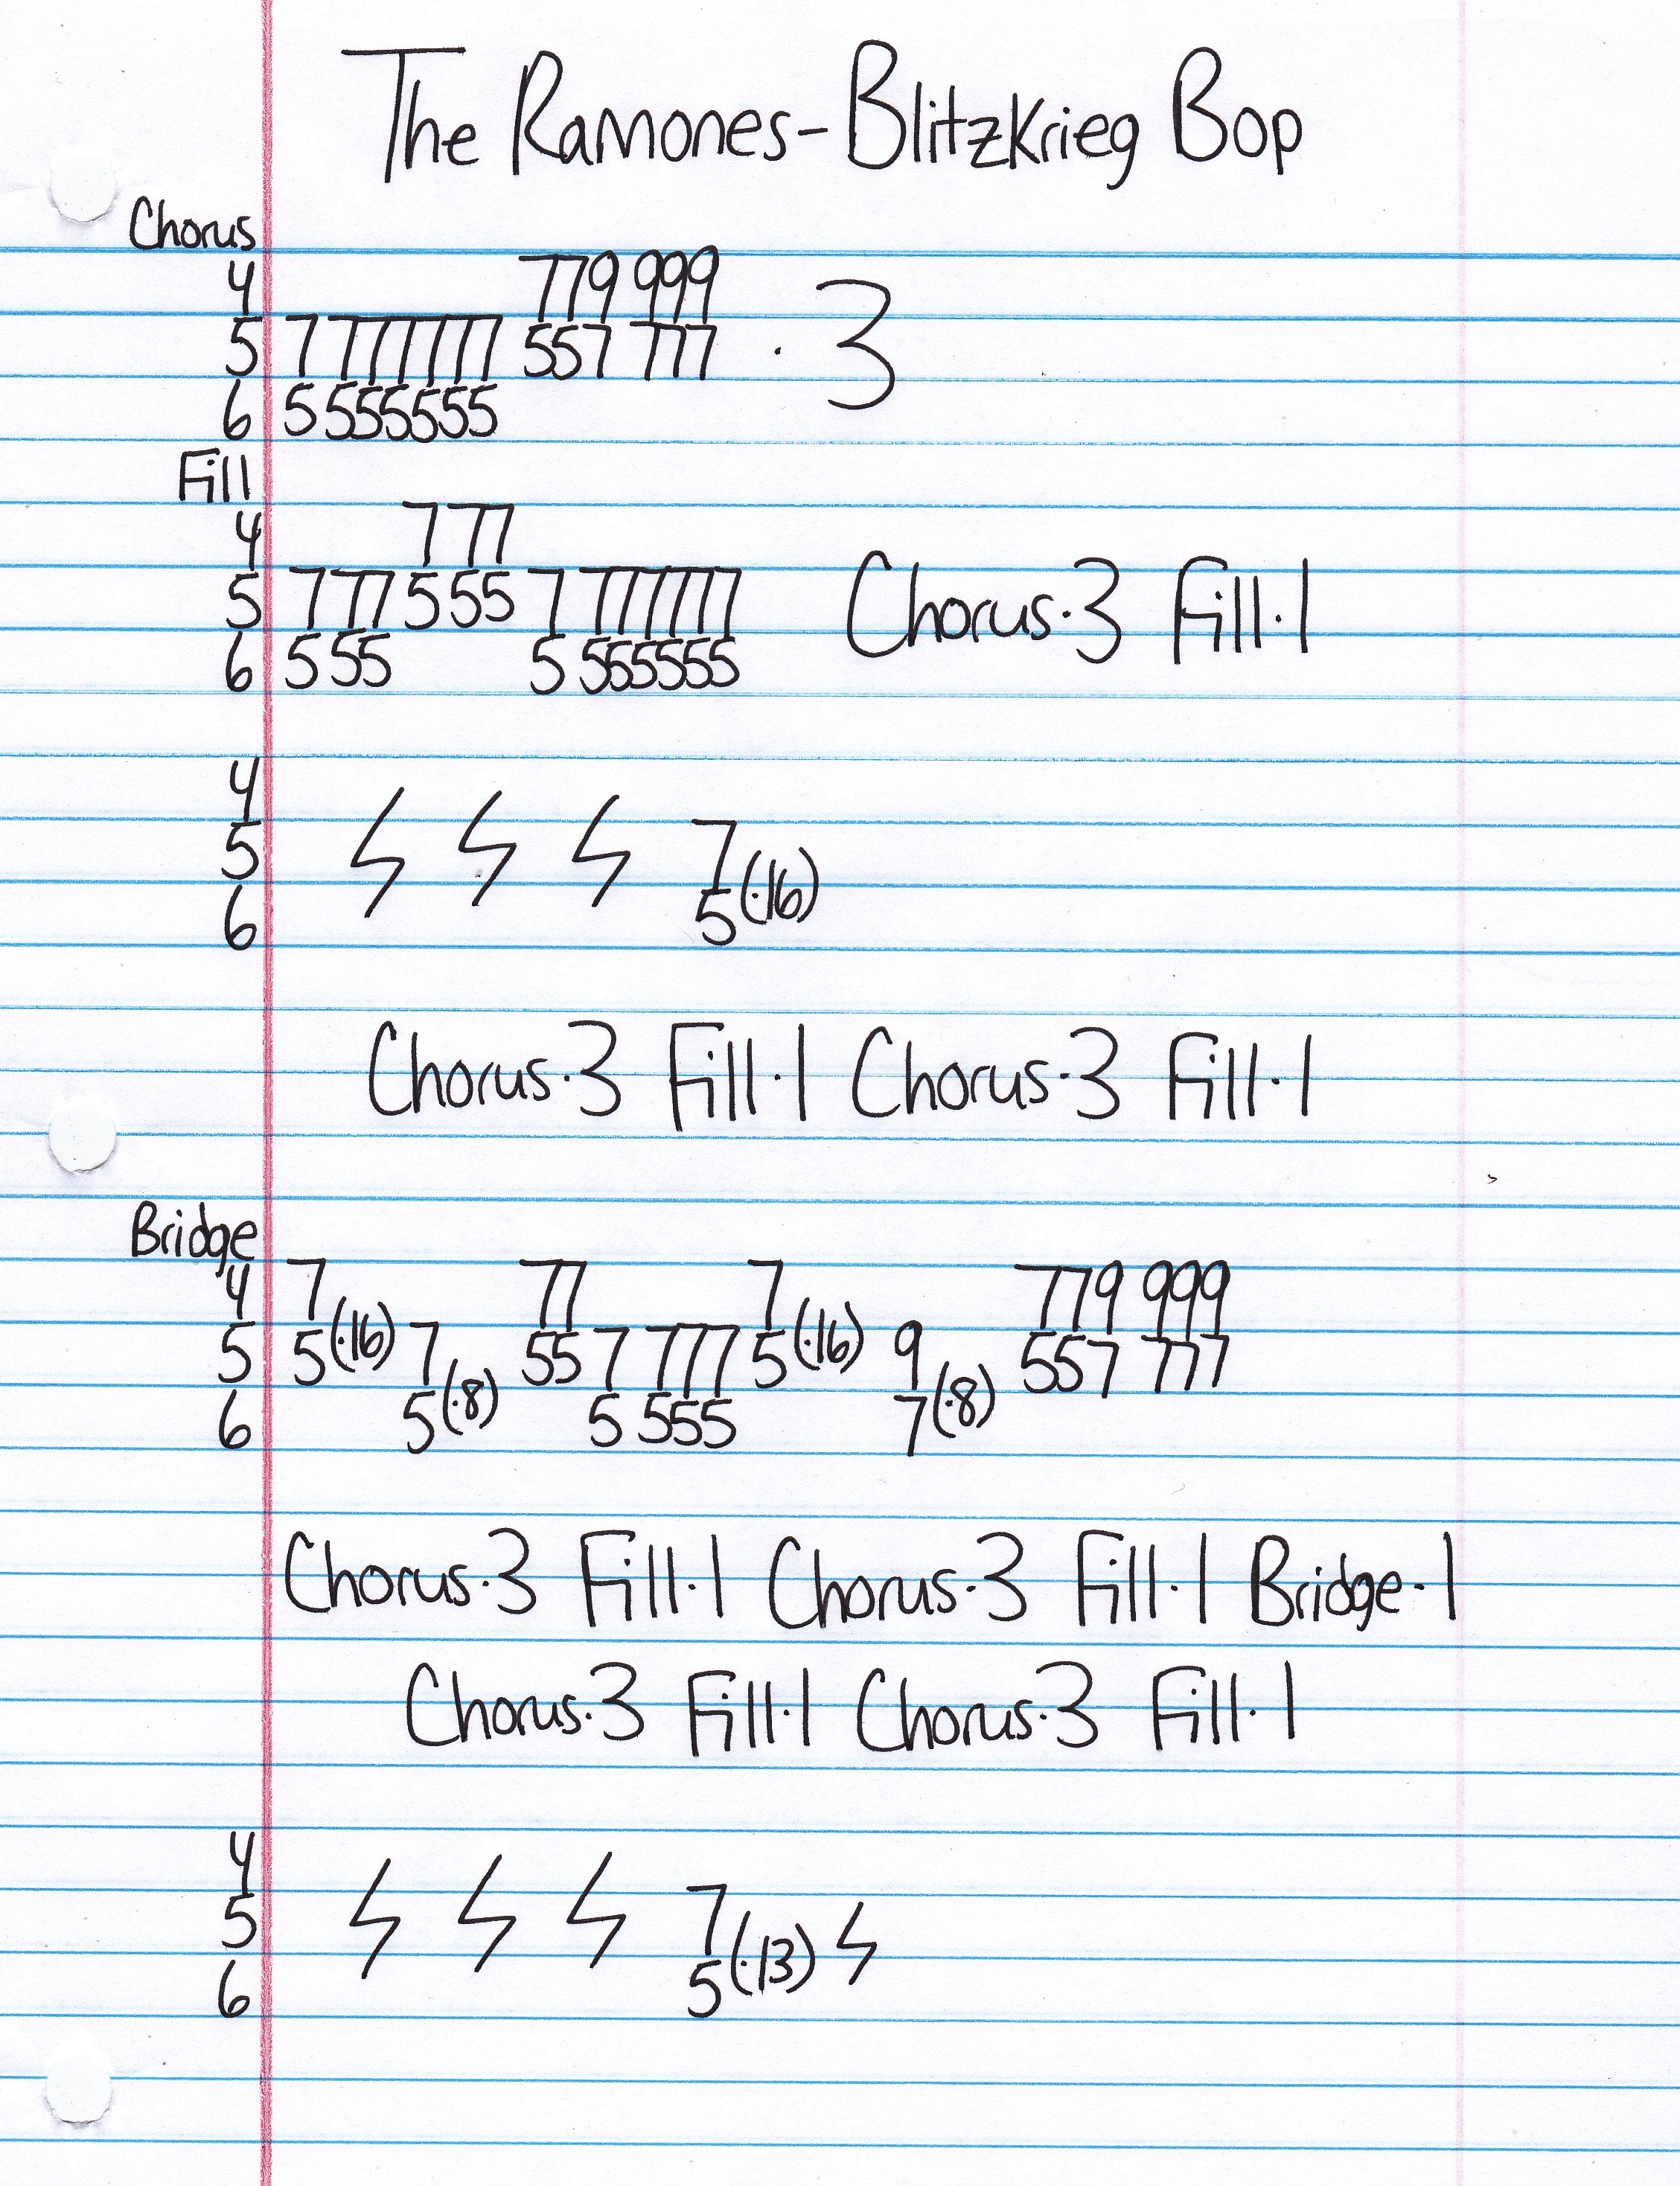 The Ramones-Blitzkrieg Bop
Chorus
4 779 999
5 7 777777 557 777 · 3
6 5 555555
Fill
4 7 77
5 7 77 5 55 7 777777 Chorus·3 Fill·1
6 5 55 5 555555
4
5 7
6 5(·16)
Chorus·3 Fill·1 Chorus·3 Fill·1
Bridge
4 7 77 7 779 999
5 5(·16) 7 55 7 777 5(·16) 9 557 777
6 5(·8) 5 555 7(·8)
Chorus·3 Fill·1 Chorus·3 Fill·1 Bridge·1
Chorus·3 Fill·1 Chorus·3 Fill·1
4
5 7
6 5(·13)